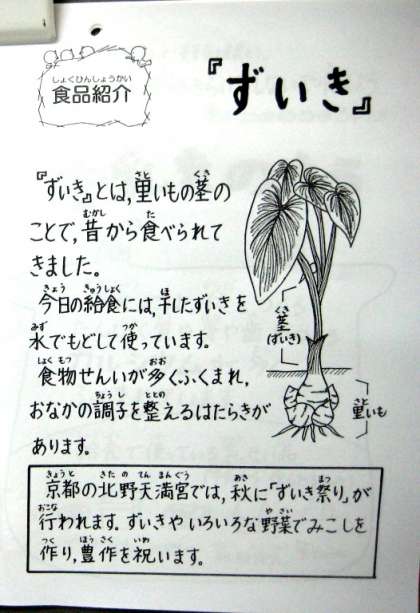 しょくひんしょうかい
食品紹介
『ずいき』
『ずいき』とは,里いもの茎の
ことで,昔から食べられて
きました。
今日の給食には,干したずいきを
水でもどして使っています。
食物せんいが多くふくまれ,
おなかの調子を整えるはたらきが
あります。
茎
(ずいき)
里いも
京都の北野天満宮では,秋に「ずいき祭り」が
行われます。ずいきやいろいろな野菜でみこしを
作り,豊作を祝います。